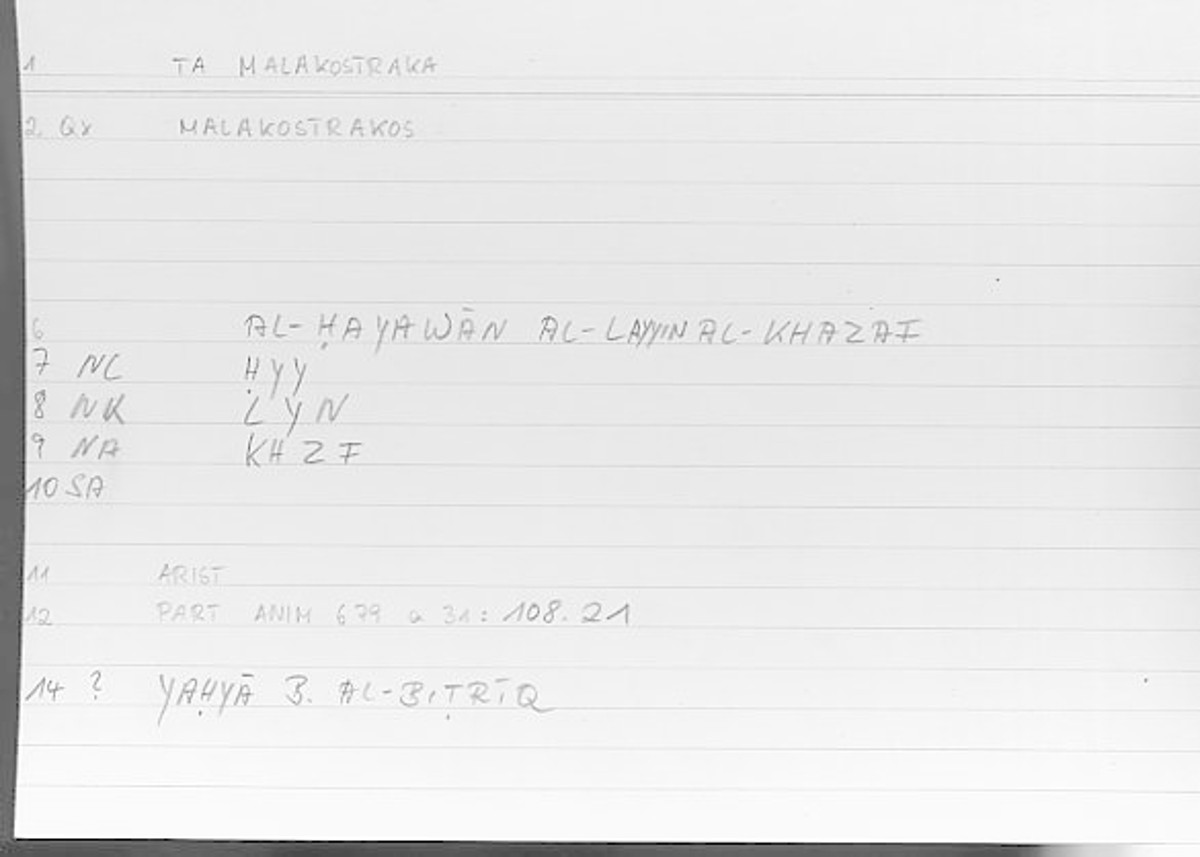 1 TA MALAKOSTRAKA
2 Qx MALAKOSTRAKOS
6 AL-ḤAYAWĀN AL-LAYYIN AL-KHAZAF
7 NC ḤYY
8 NK LYN
9 NA KHZF
10 SA
11 ARIST
12 PART ANIM 679 a 31: 108.21
14 ? YAḤYĀ B. AL-BIṬRĪQ